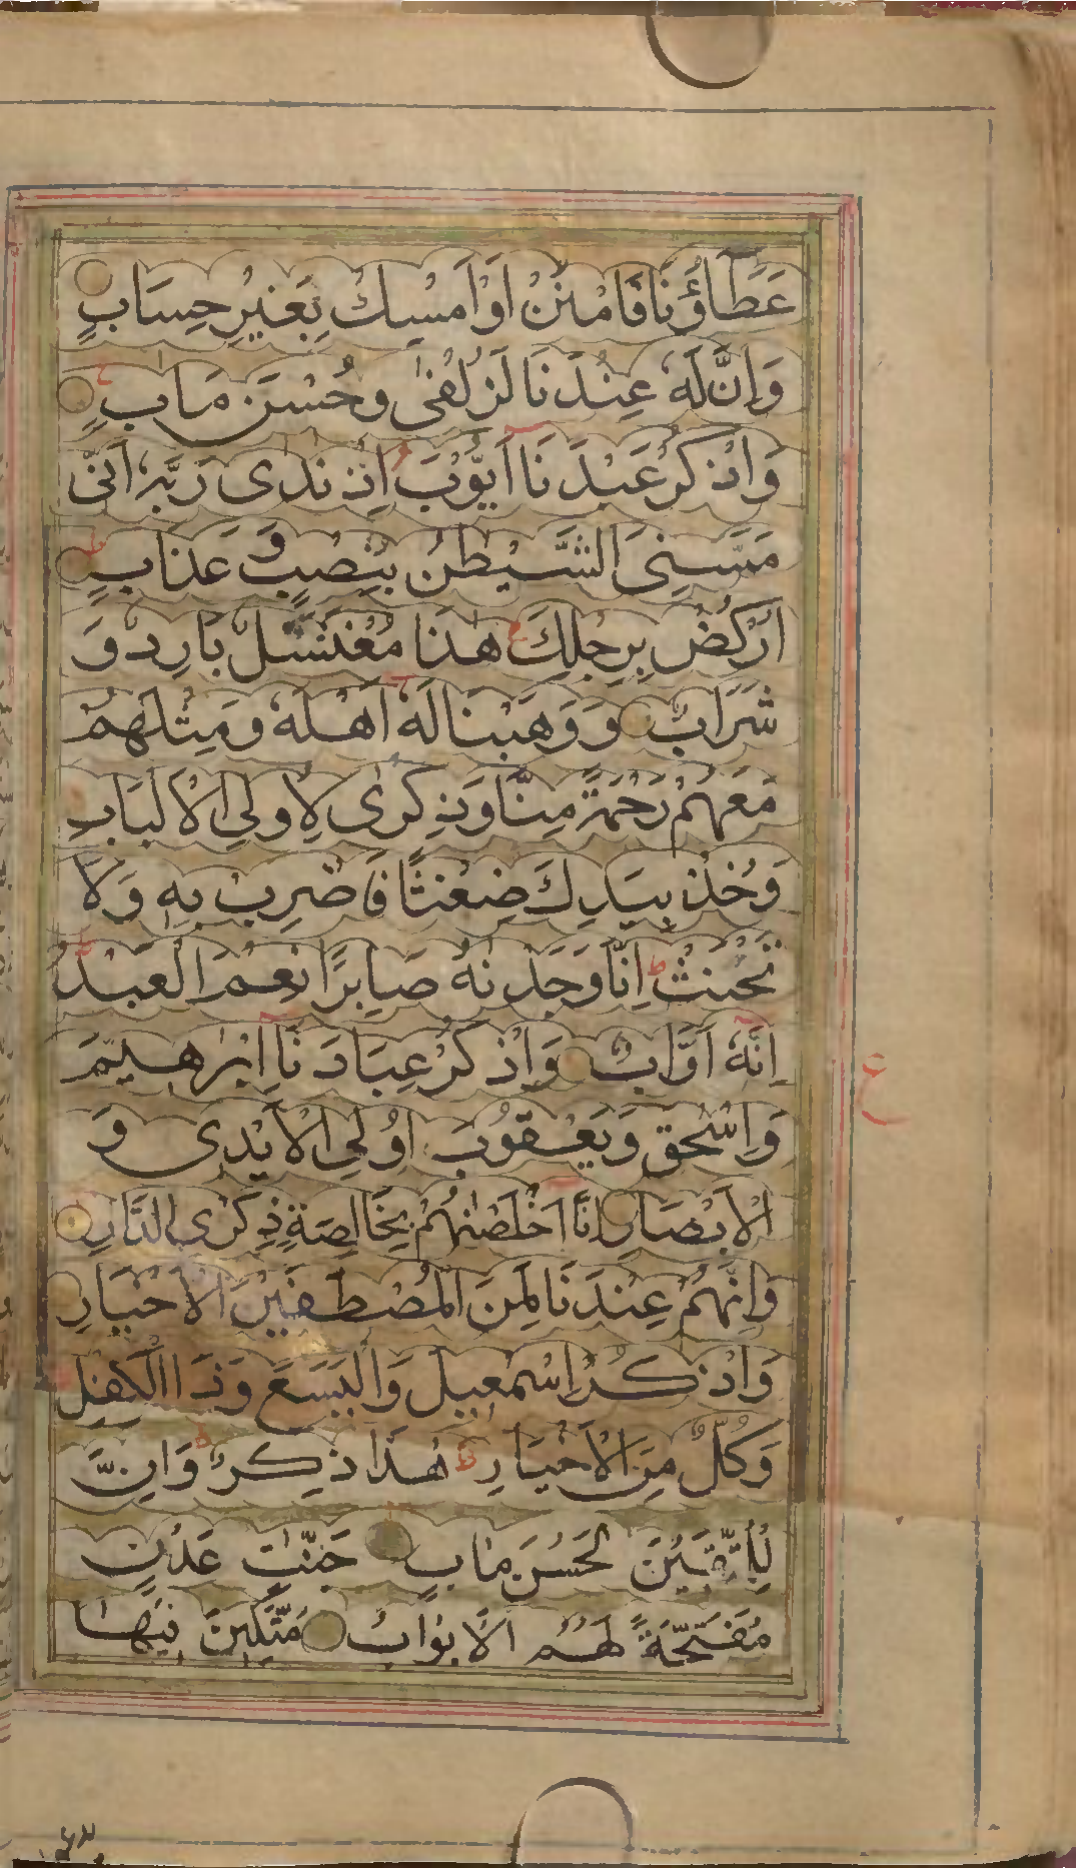 عَطَاؤُنَا فَامْنُنْ اَوْ اَمْسِكْ بِغَيْرِ حِسَابٍ
وَاِنَّ لَهٗ عِنْدَنَا لَزُلْفٰى وَحُسْنَ مَاٰبٍ
وَاذْكُرْ عَبْدَنَا اَيُّوْبَ اِذْ نَادٰى رَبَّهٗ اَنِّى
مَسَّنِىَ الشَّيْطٰنُ بِنُصْبٍ وَّعَذَابٍ
اُرْكُضْ بِرِجْلِكَ هٰذَا مُغْتَسَلٌ بَارِدٌ وَّ
شَرَابٌ وَوَهَبْنَا لَهٗ اَهْلَهٗ وَمِثْلَهُمْ
مَعَهُمْ رَحْمَةً مِنَّا وَذِكْرٰى لِاُولِى الْاَلْبَابِ
وَخُذْ بِيَدِكَ ضِغْثًا فَاضْرِبْ بِهٖ وَلَا
تَحْنَثْ اِنَّا وَجَدْنٰهُ صَابِرًا نِعْمَ الْعَبْدُ
اِنَّهٗ اَوَّابٌ وَاذْكُرْ عِبَادَنَا اِبْرٰهِيْمَ
وَاِسْحٰقَ وَيَعْقُوْبَ اُولِى الْاَيْدِى وَ
الْاَبْصَارِ اِنَّا اَخْلَصْنٰهُمْ بِخَالِصَةٍ ذِكْرَى الدَّارِ
وَاِنَّهُمْ عِنْدَنَا لَمِنَ الْمُصْطَفَيْنَ الْاَخْيَارِ
وَاذْكُرْ اِسْمٰعِيْلَ وَالْيَسَعَ وَذَا الْكِفْلِ
وَكُلٌّ مِنَ الْاَخْيَارِ هٰذَا ذِكْرٌ وَاِنَّ
لِلْمُتَّقِيْنَ لَحُسْنَ مَاٰبٍ جَنّٰتِ عَدْنٍ
مُفَتَّحَةً لَهُمُ الْاَبْوَابُ مُتَّكِئِيْنَ فِيْهَا
ع